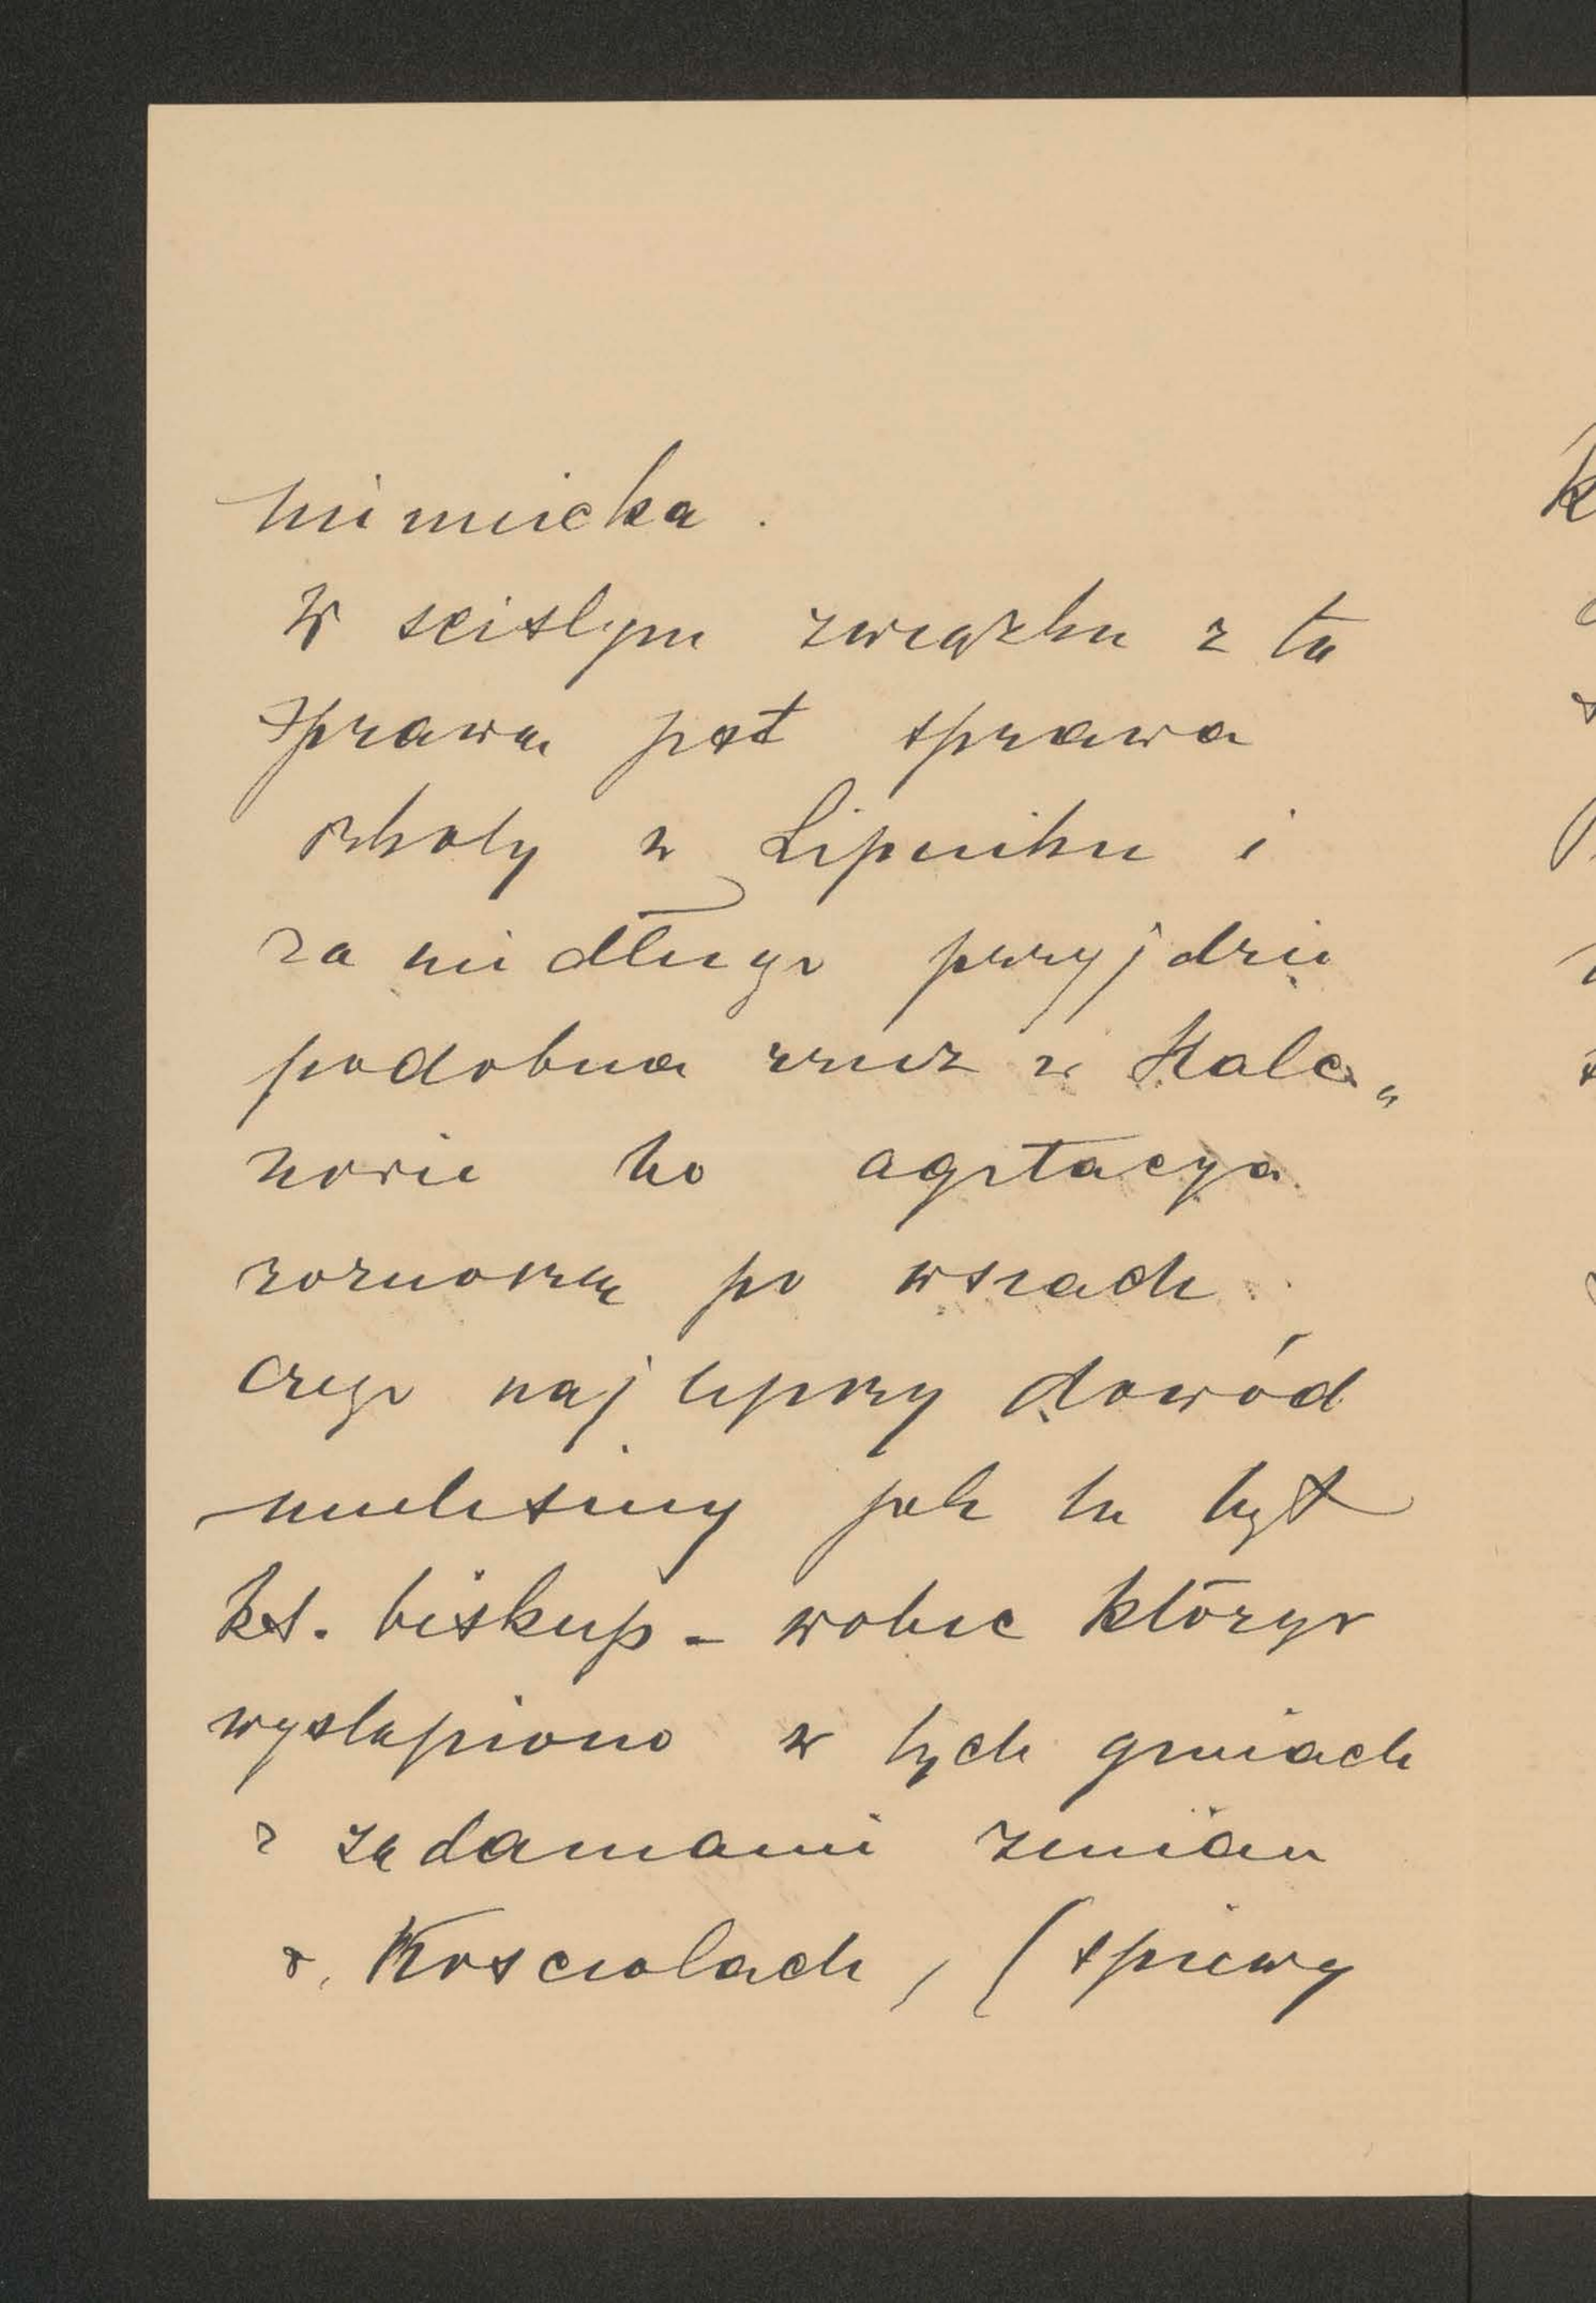 niemiecka.
W scisłym związku z tą
sprawą jest sprawa
szkoły w Lipniku i
za niedługo przyjdzie
podobna rzecz w Halc„
nowie bo agitacya
roznoszą po wsiach
czego najlepszy dowód
mieliśmy jak tu był
ks. biskup - wobec którego
wystąpiono w tych gminach
z żądaniami zmian
w Kosciolach, (spiewy
K